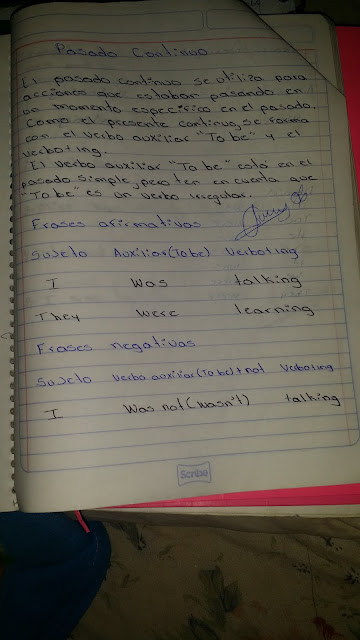 Pasado Continuo
El pasado continuo se utiliza para
acciones que estaban pasando en
un momento especifico en el pasado.
Como el presente continuo, se forma
con el verbo auxiliar "To be" y el
verbo+ing.
El verbo auxiliar "To be" está en el
pasado simple, pero ten en cuenta que
"To be" es un verbo irregular.
Frases afirmativas
Sujeto Auxiliar(To be) Verbo+ing
I Was talking
They were learning
Frases negativas
Sujeto Verbo auxiliar(To be)+not Verbo+ing
I Was not(wasn't) talking
Scribe